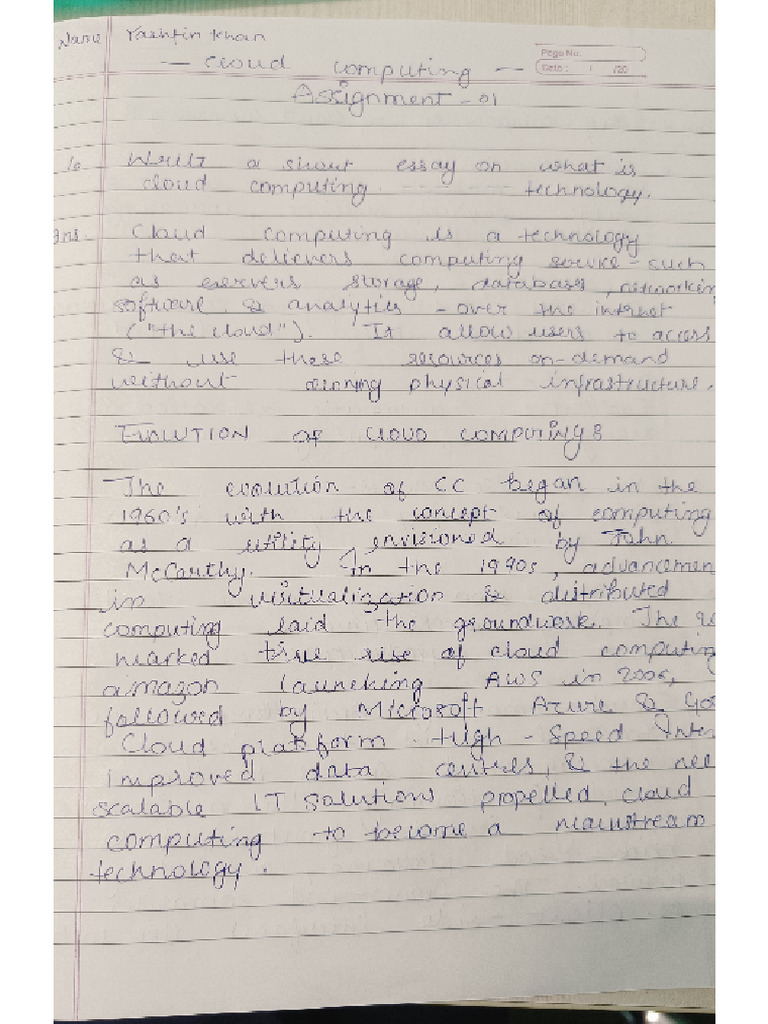 Name Yashfin Khan
Page No.
— Cloud computing —
Date: / /20
Assignment - 01
1. Write a short essay on what is
cloud computing ------- technology.
Ans. Cloud computing is a technology
that delievers computing service - such
as servers storage, databases, networkin
software & analytics - over the internet
("the cloud"). It allow users to access
& use these resources on-demand
without owning physical infrastructure.
EVOLUTION of CLOUD COMPUTING :
The evolution of CC began in the
1960's with the concept of computing
as a utility envisioned by John
McCarthy. In the 1990s, advancemen
in virtualization & distributed
computing laid the groundwork. The 20
marked true rise of cloud computing
amazon launching AWS in 2006,
followed by Microsoft Azure & Goo
Cloud platform. High-Speed Inter
improved data centres, & the nee
scalable IT solutions propelled cloud
computing to become a mainstream
technology.